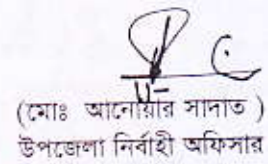 (মোঃ আনোয়ার সাদাত )
উপজেলা নির্বাহী অফিসার